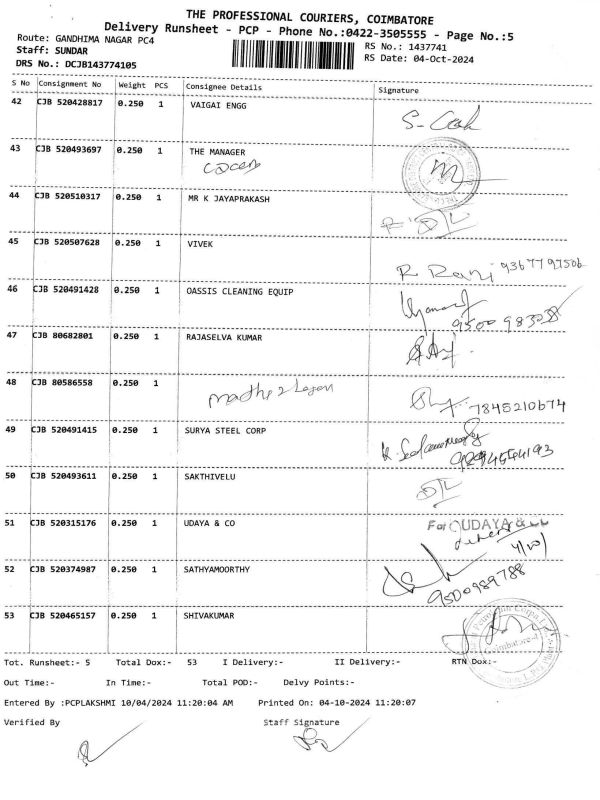 THE PROFESSIONAL COURIERS, COIMBATORE
Delivery Runsheet - PCP - Phone No.:0422-3505555 - Page No.:5
Route: GANDHIMA NAGAR PC4
RS No.: 1437741
Staff: SUNDAR
RS Date: 04-Oct-2024
DRS No.: DCJB143774105
S No Consignment No Weight PCS Consignee Details Signature
42 CJB 520428817 0.250 1 VAIGAI ENGG
43 CJB 520493697 0.250 1 THE MANAGER
44 CJB 520510317 0.250 1 MR K JAYAPRAKASH
45 CJB 520507628 0.250 1 VIVEK
R 9367797506
46 CJB 520491428 0.250 1 OASSIS CLEANING EQUIP
47 CJB 80682801 0.250 1 RAJASELVA KUMAR
48 CJB 80586558 0.250 1
7845210674
49 CJB 520491415 0.250 1 SURYA STEEL CORP
50 CJB 520493611 0.250 1 SAKTHIVELU
51 CJB 520315176 0.250 1 UDAYA & CO
For UDAYA & CO
4/10/
52 CJB 520374987 0.250 1 SATHYAMOORTHY
9500989788
53 CJB 520465157 0.250 1 SHIVAKUMAR
Coimbatore-4
Tot. Runsheet:- 5 Total Dox:- 53 I Delivery:- II Delivery:- RTN Dox:-
Out Time:- In Time:- Total POD:- Delvy Points:-
Entered By :PCPLAKSHMI 10/04/2024 11:20:04 AM Printed On: 04-10-2024 11:20:07
Verified By Staff Signature